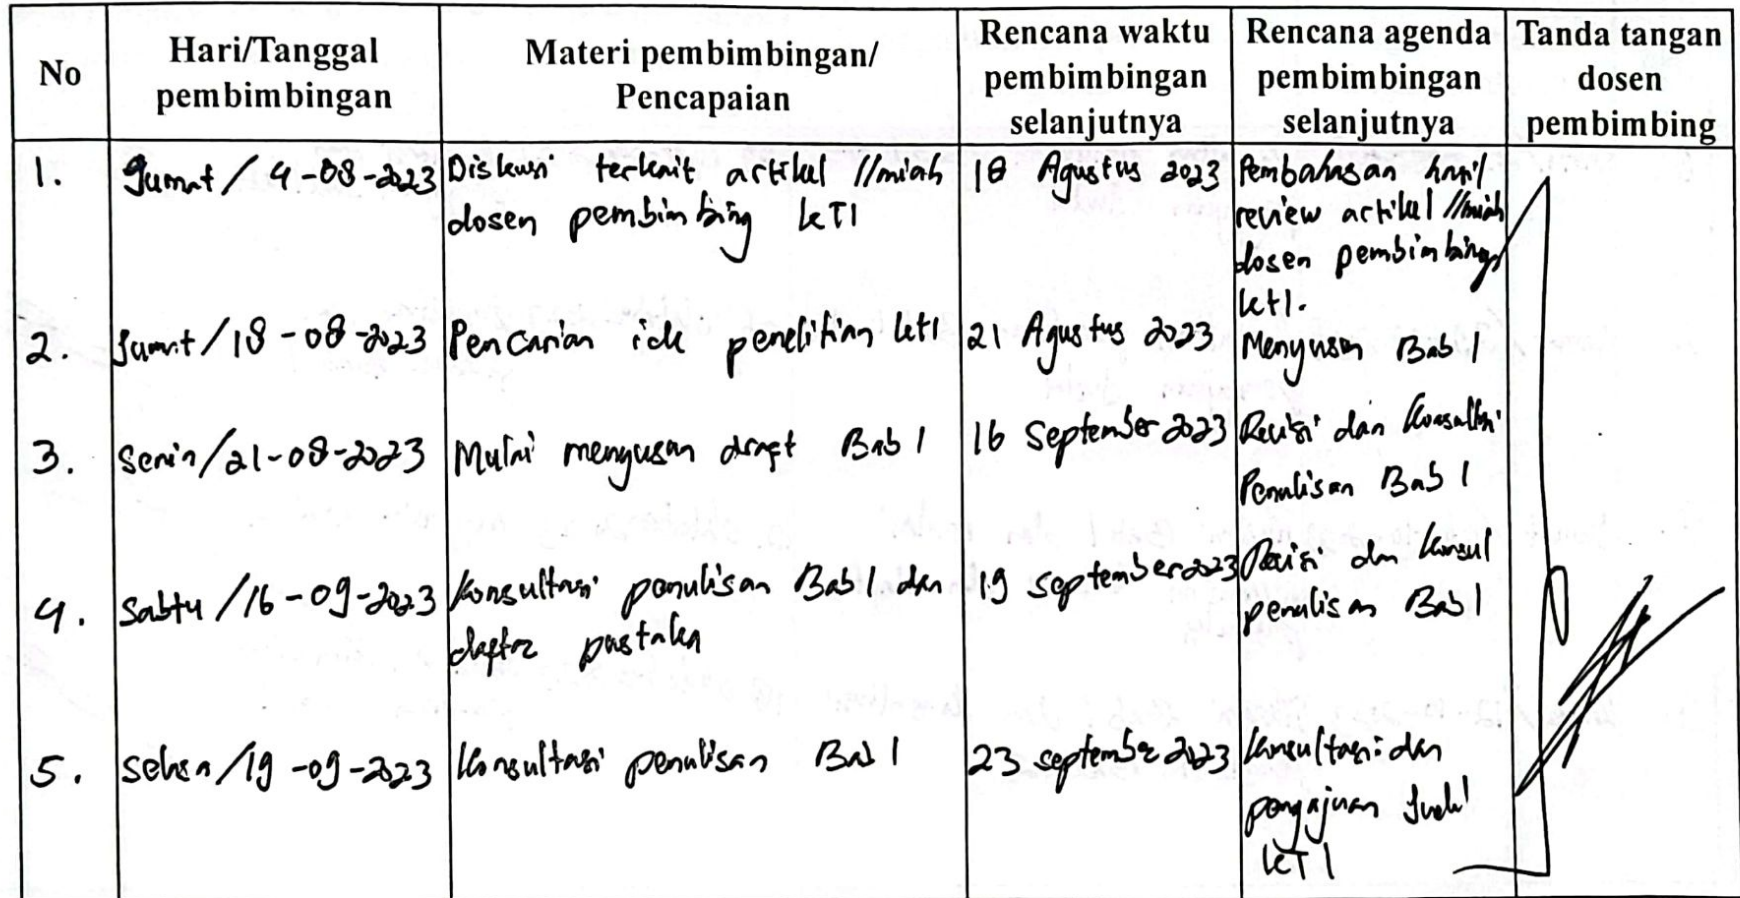 No
Hari/Tanggal
pembimbingan
Materi pembimbingan/
Pencapaian
Rencana waktu
pembimbingan
selanjutnya
Rencana agenda
pembimbingan
selanjutnya
Tanda tangan
dosen
pembimbing
1.
Jumat / 4-08-2023
Diskusi terkait artikel Ilmiah
dosen pembimbing KTI
18 Agustus 2023
Pembahasan hasil
review artikel Ilmiah
dosen pembimbing
KTI.
2.
Jumat / 18-08-2023
Pencarian ide penelitian KTI
21 Agustus 2023
Menyusun Bab 1
3.
Senin / 21-08-2023
Mulai menyusun draft Bab 1
16 September 2023
Revisi dan Konsultasi
Penulisan Bab 1
4.
Sabtu / 16-09-2023
Konsultasi penulisan Bab 1 dan
daftar pustaka
19 September 2023
Revisi dan Konsul
penulisan Bab 1
5.
Selasa / 19-09-2023
Konsultasi penulisan Bab 1
23 September 2023
Konsultasi dan
pengajuan Judul
KTI